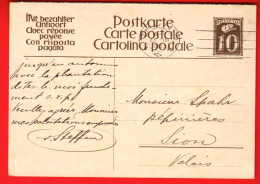 Mit bezahlter
Antwort
Avec réponse
payée
Con risposta
pagata
Postkarte
Carte postale
Cartolina postale
HELVETIA
10
jusqu'en automne
avec la plantation
dites le moi franche-
ment s.v.p.
Veuillez agréer, Monsieur
mes salutations
v. Steffen
Monsieur Spahr
pépinières
Sion
Valais